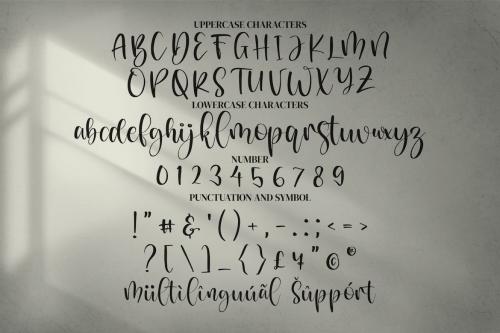 UPPERCASE CHARACTERS
ABCDEFGHIJKLMN
OPQRSTUVWXYZ
LOWERCASE CHARACTERS
abcdefghijklmopqrstuvwxyz
NUMBER
0123456789
PUNCTUATION AND SYMBOL
!"#&'()+,-.:;<=>
?[\]_{}£¥"©®
Mültilînguúãl Šûppórt